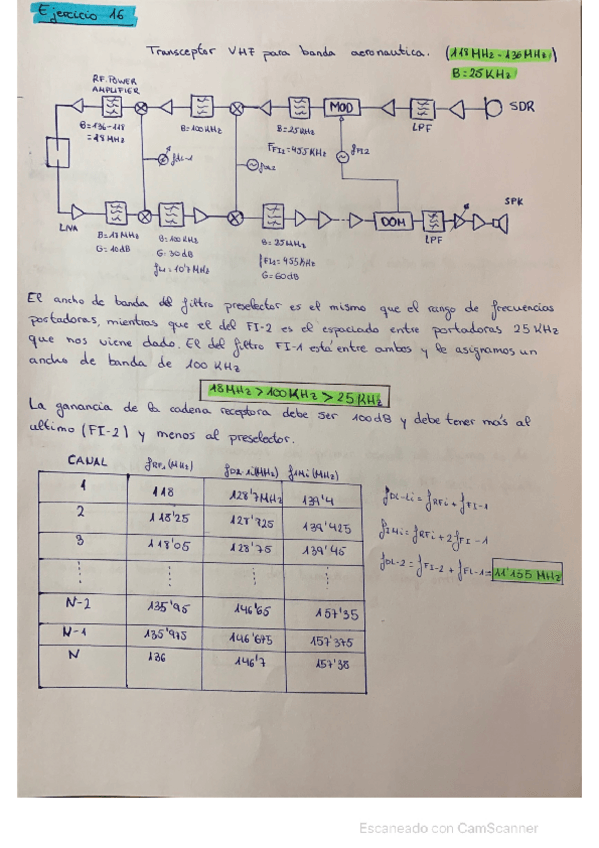 Ejercicio 16
Transceptor VHF para banda aeronautica. (118 MHz - 136 MHz)
B = 25 KHz
R.F. POWER
AMPLIFIER
MOD
SDR
B = 136-118
= 18 MHz
B = 100 KHz
B = 25 KHz
LPF
fOL-1
fOL2
FFI2 = 455 KHz
fFI2
SPK
LNA
B = 18 MHz
G: 10 dB
B = 100 KHz
G: 30 dB
fFI = 10'7 MHz
B = 25 MHz
fFI2 = 455 KHz
G = 60 dB
DOM
LPF
El ancho de banda del filtro preselector es el mismo que el rango de frecuencias
portadoras, mientras que el del FI-2 es el espaciado entre portadoras 25 KHz
que nos viene dado. El del filtro FI-1 está entre ambos y le asignamos un
ancho de banda de 100 KHz
18 MHz > 100 KHz > 25 KHz
La ganancia de la cadena receptora debe ser 100 dB y debe tener más al
ultimo (FI-2) y menos al preselector.
CANAL fRFi (MHz) fOL-1i (MHz) fIMi (MHz)
1 118 128'7 MHz 139'4
2 118'25 128'725 139'425
3 118'05 128'75 139'45
N-2 135'95 146'65 157'35
N-1 135'975 146'675 157'375
N 136 146'7 157'38
fOL-1i = fRFi + fFI-1
fIMi = fRFi + 2fFI-1
fOL-2 = fFI-2 + fFI-1 = 11'155 MHz
Escaneado con CamScanner